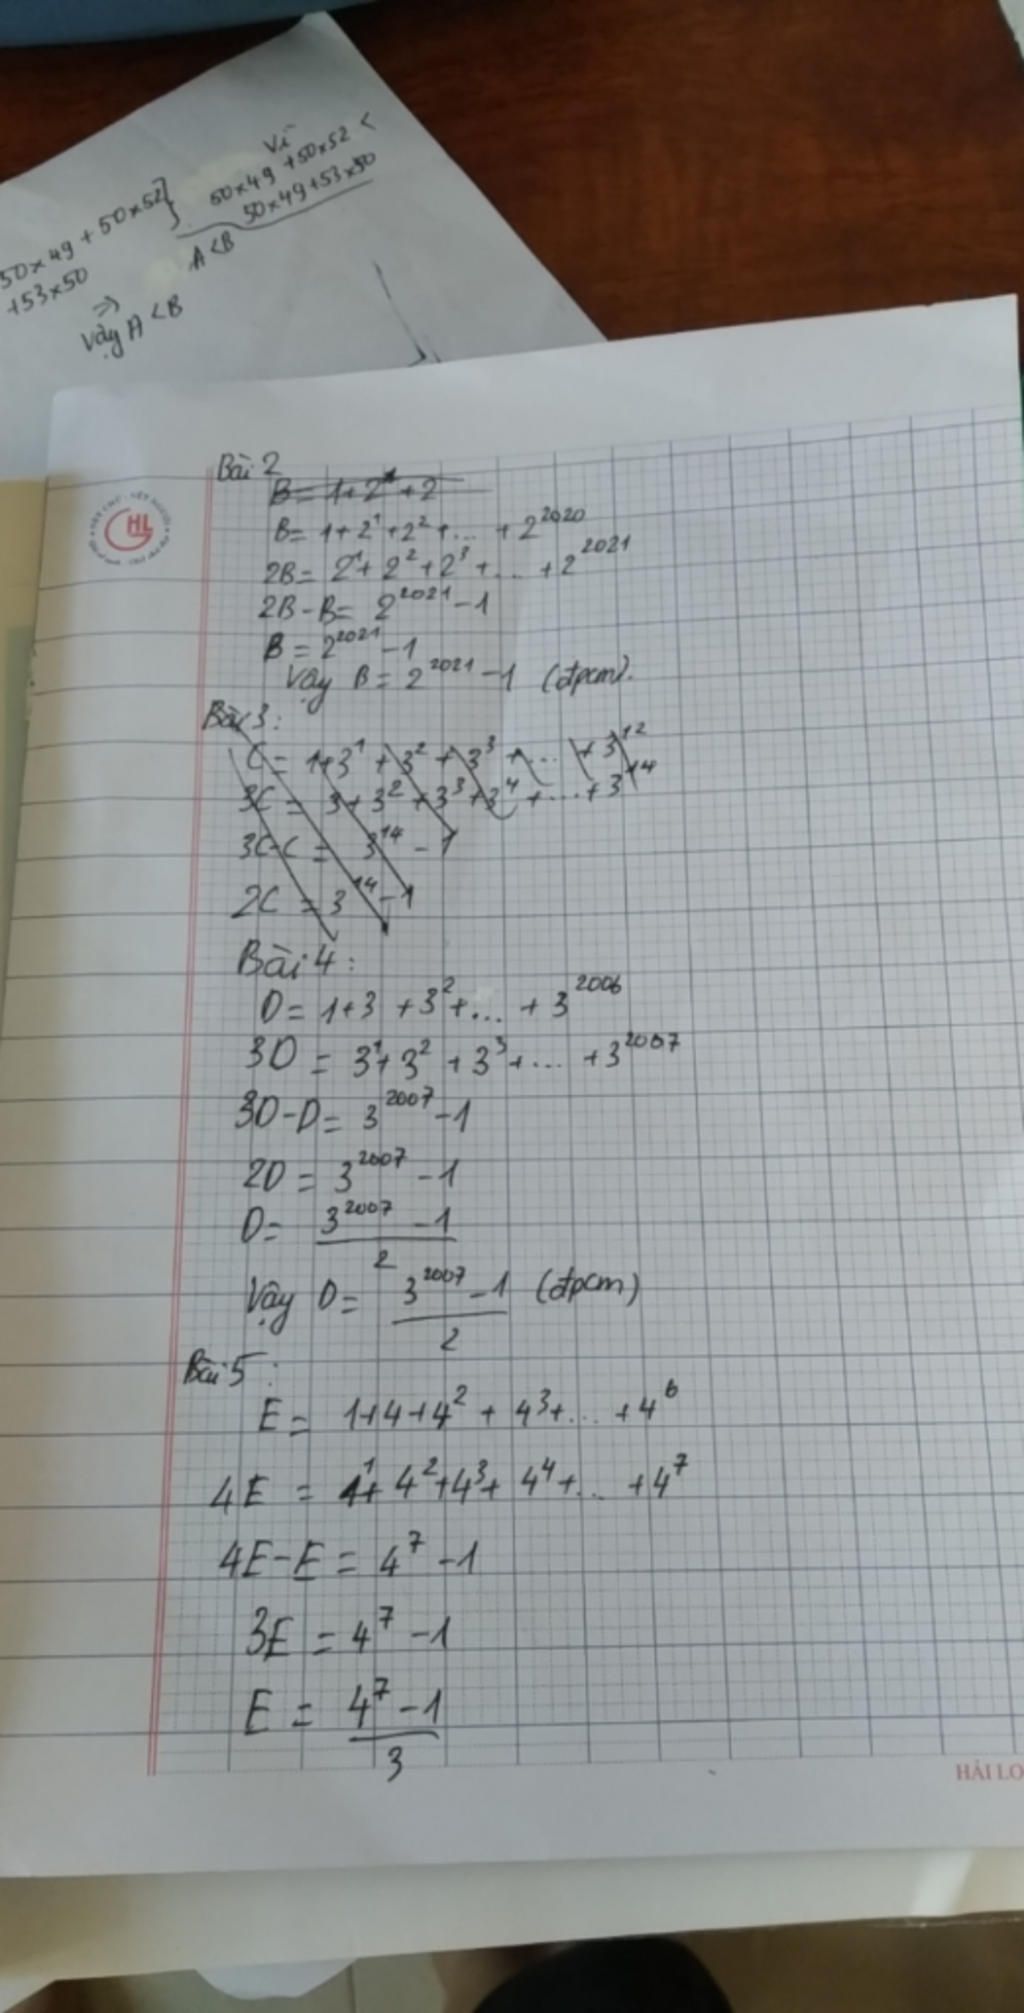 Vì
50×49 + 50×52 <
50×49 + 53×50
A<B
50×49 + 50×52}
+53×50
=>
Vậy A<B
HL
Bài 2
B= 1+2 +2
B= 1+2¹+2²+... +2²⁰²⁰
2B= 2¹+ 2²+2³+... +2²⁰²¹
2B-B= 2²⁰²¹-1
B=2²⁰²¹-1
Vậy B= 2²⁰²¹-1 (đpcm).
Bài 3:
C= 1+3¹ +3² +3³ +... +3¹²
3C= 3+3² +3³+3⁴+...+3¹⁴
3C-C= 3¹⁴-1
2C =3¹⁴-1
Bài 4:
D= 1+3 +3²+... +3²⁰⁰⁶
3D = 3¹+3² +3³+... +3²⁰⁰⁷
3D-D= 3²⁰⁰⁷-1
2D = 3²⁰⁰⁷ -1
D= 3²⁰⁰⁷ -1
2
Vậy D= 3²⁰⁰⁷-1 (đpcm)
2
Bài 5:
E= 1+4+4² + 4³+... +4⁶
4E = 4¹+ 4²+4³+ 4⁴+... +4⁷
4E-E = 4⁷-1
3E = 4⁷ -1
E = 4⁷-1
3
HẢI LO